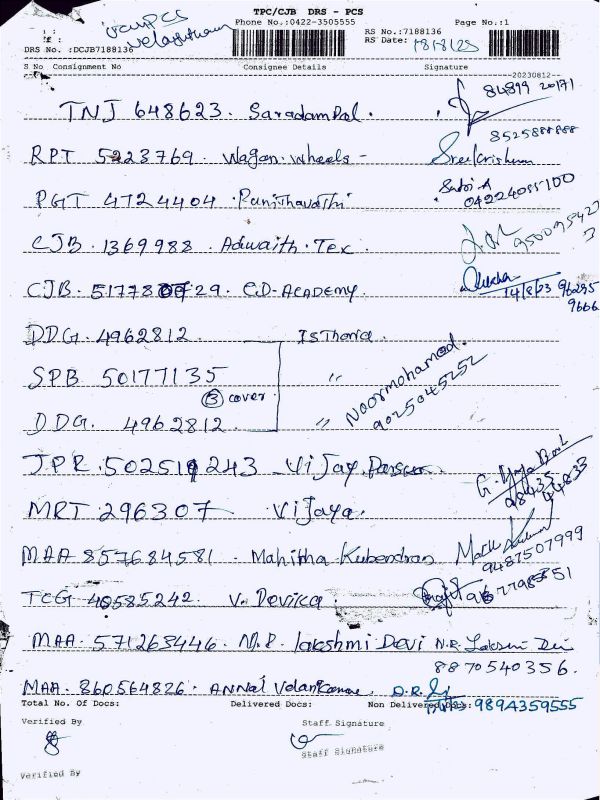 TPC/CJB DRS - PCS
Phone No.:0422-3505555
Page No.:1
DRS No. :DCJB7188136
RS No.:7188136
RS Date:
S No Consignment No Consignee Details Signature
20230812
TNJ 648623. Saradampal. 84899 20171
8525888888
RPT 5223769. Wagan wheels - Sreekrishnan
PGT 4724404. Punithavathi 04224055100
CJB. 1369988. Adwaith. Tex.
CJB. 51778 0729. C.D-ACADEMY. 14/8/23 96295
9666
DDG. 4962812. Isthoria.
SPB 50177135 "
③ cover.
Noormohamed.
9025045252
DDG. 4962812. "
JPR. 502519243 - Vijay
98435
44833
MRT 296307 Vijaya.
MAA 857684581. Mahitha Kubendran 9487507999
TCG 40585242. V. Devika.
MAA. 571265446. M.P. lakshmi Devi
8870540356.
MAA. 860564826. ANNai Velankanni. D.R. 9894359555
Total No. Of Docs: Delivered Docs: Non Delivered Docs:
Verified By Staff Signature
Staff Signature
Verified By